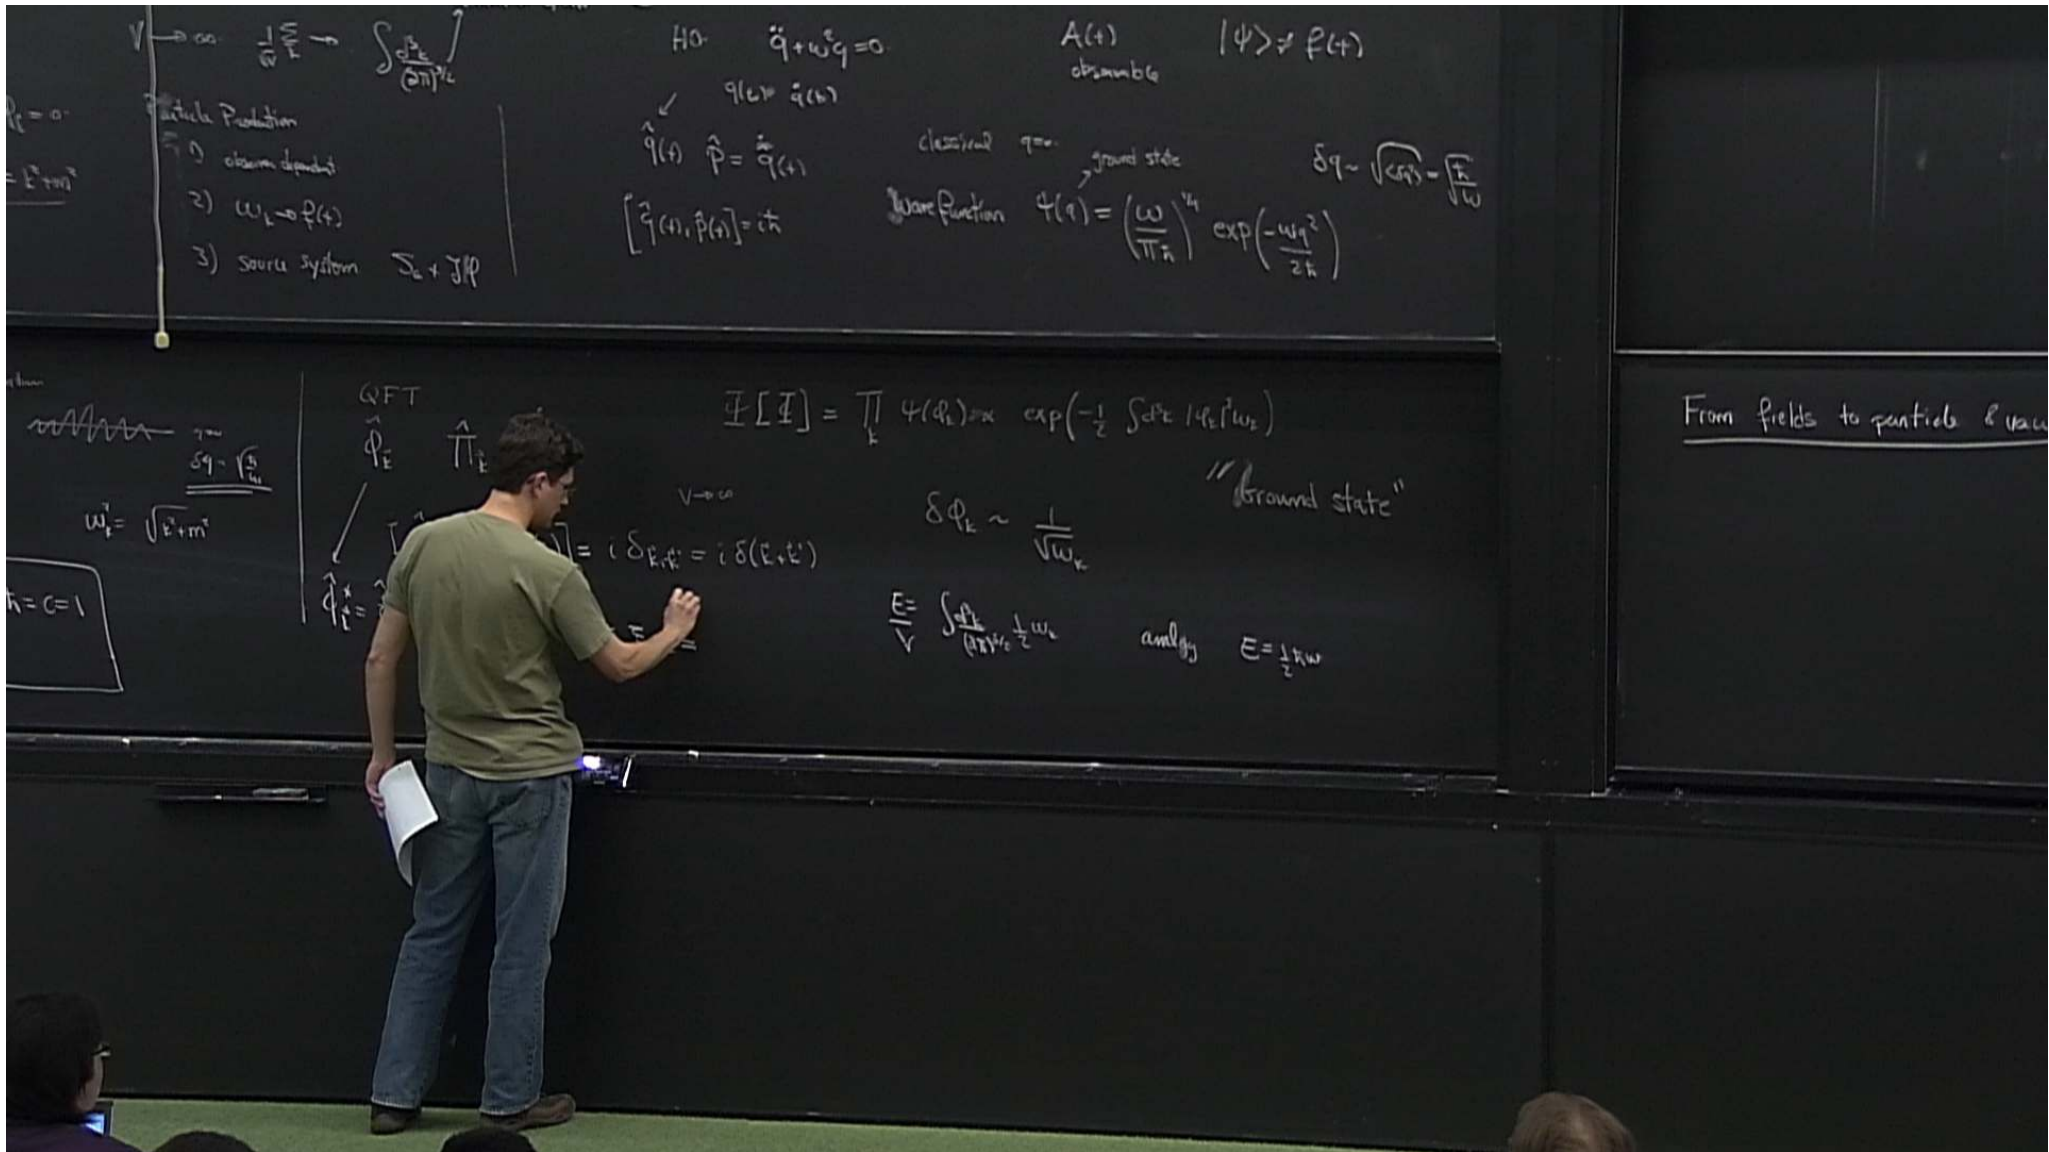 V → ∞ 1/√V Σ_k → ∫ d³k/(2π)^{3/2}
φ_k = 0
= k² + m²
Particle Production
1) observer dependent
2) ω_k → f(t)
3) source system S_0 + Jφ
HO q̈ + ω²q = 0
q(t) q̇(t)
q̂(t) p̂ = q̂̇(t)
[q̂(t), p̂(t)] = iħ
A(t)
observable
|ψ⟩ ≠ f(t)
classical q=0
ground state
Wavefunction ψ(q) = (ω/πħ)^{1/4} exp(-ωq²/2ħ)
δq ~ √⟨δq²⟩ = √(ħ/ω)
δq ~ √(ħ/ω)
ω_k = √(k²+m²)
ħ = c = 1
QFT
φ̂_k Π̂_k
] = i δ_{k,-k'} = i δ(k+k')
V → ∞
φ̂_k* =
Ψ[Φ] = ∏_k ψ(φ_k) ∝ exp(-1/2 ∫d³k |φ_k|² ω_k)
"Ground state"
δφ_k ~ 1/√ω_k
E/V = ∫ d³k/(2π)^{3/2} 1/2 ω_k
analgy E = 1/2 ħω
From fields to particle & vacu